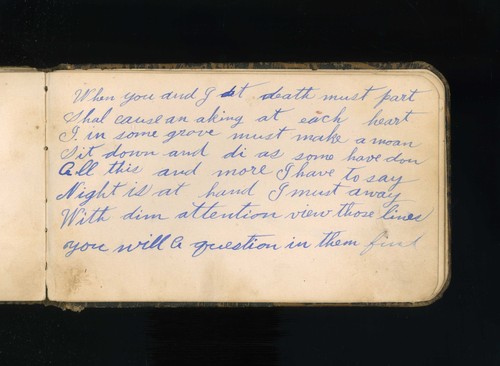 When you and I at death must part
Shal cause an aking at each heart
I in some grove must make a moan
Sit down and di as some have don
All this and more I have to say
Night is at hand I must away
With dim attention view those lines
you will a question in them find